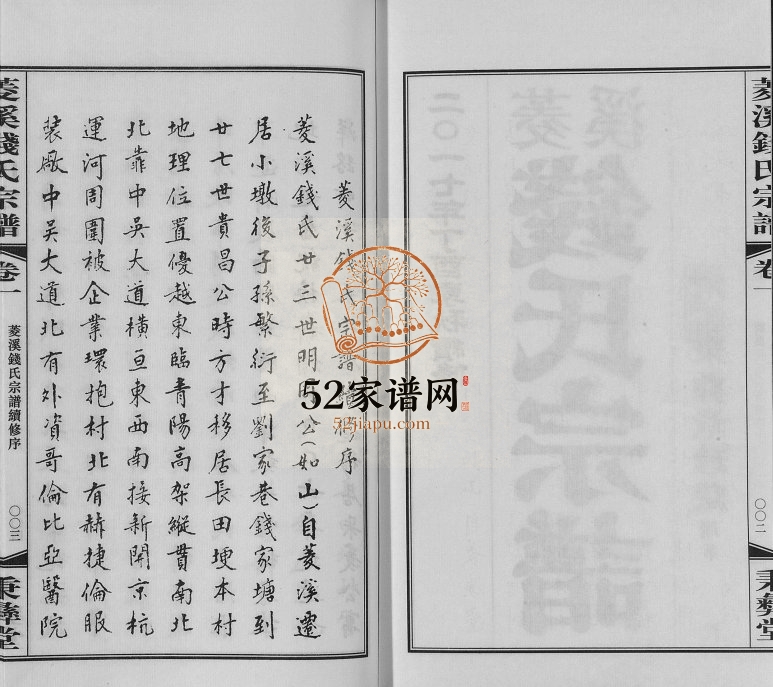 菱溪錢氏宗譜
卷一
〇〇二
秉彝堂
菱溪錢氏宗譜續修序
菱溪錢氏廿三世明 公(如山)自菱溪遷
居小墩後子孫繁衍至劉家巷錢家塘到
廿七世貴昌公時方才移居長田埂本村
地理位置優越東臨青陽高架縱貫南北
北靠中吳大道橫亘東西南接新開京杭
運河周圍被企業環抱村北有赫捷倫服
裝廠中吳大道北有外資哥倫比亞醫院
菱溪錢氏宗譜
卷一
菱溪錢氏宗譜續修序
〇〇三
秉彝堂
52家谱网
52jiapu.com